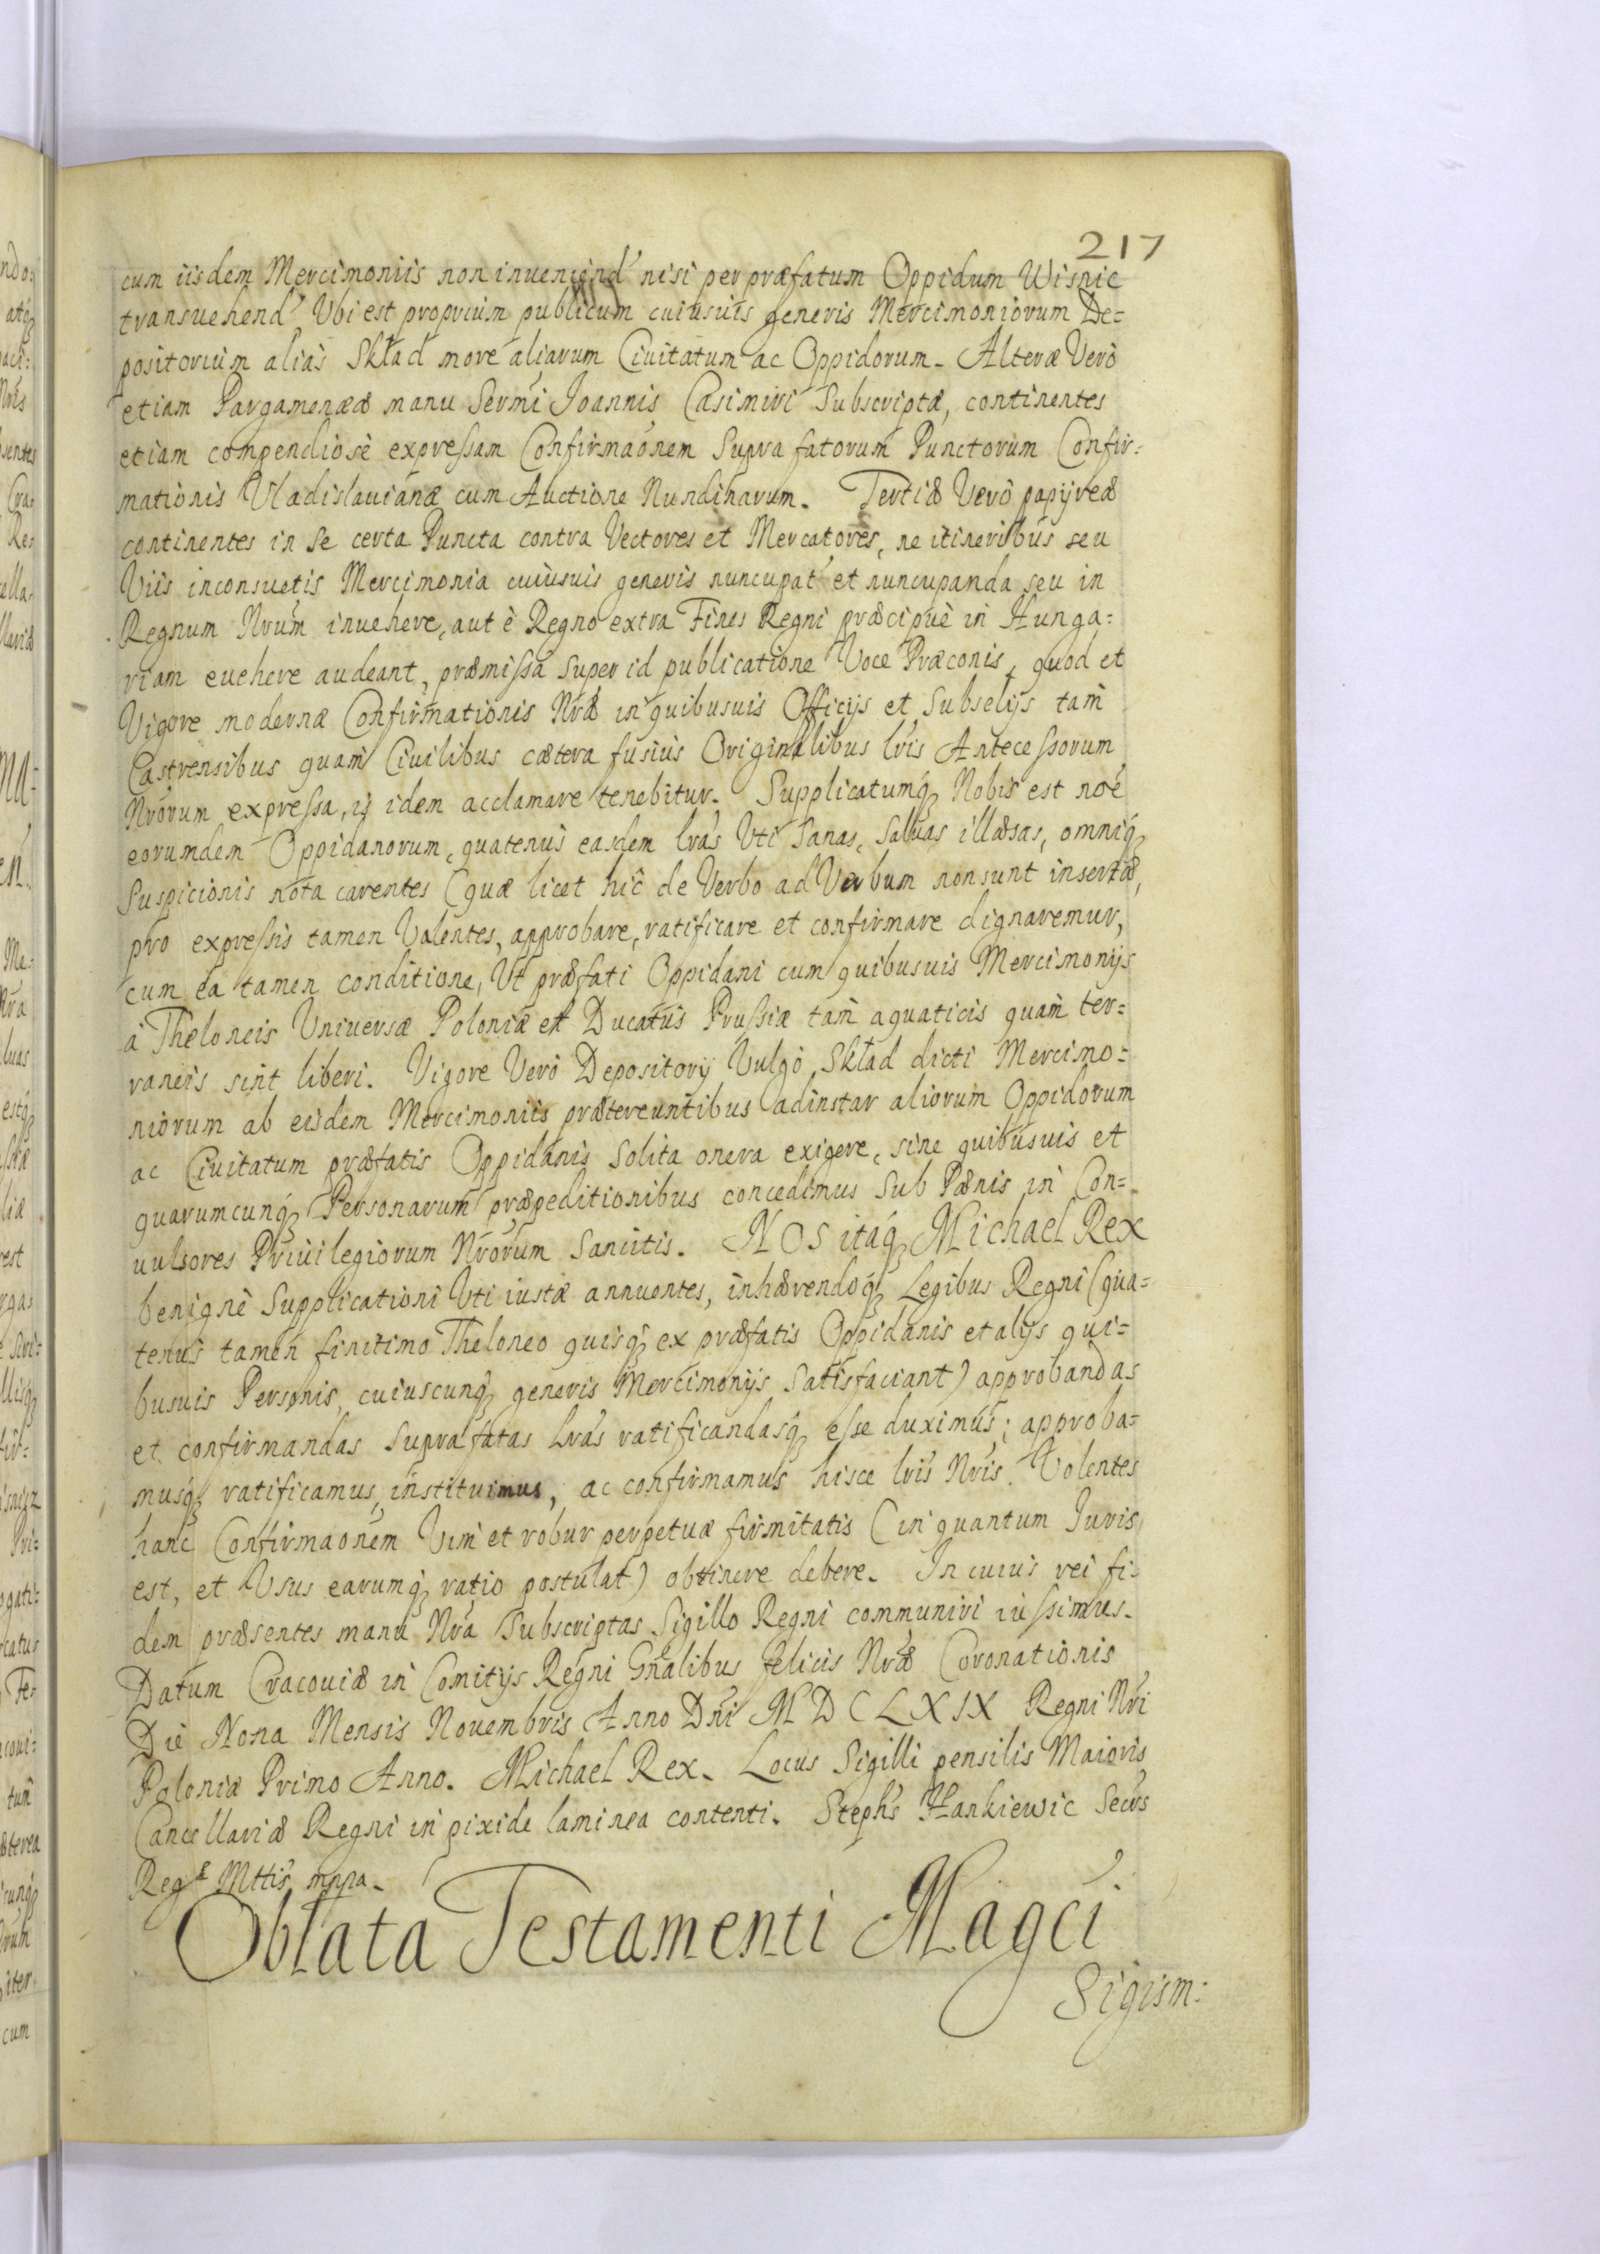 217
cum iisdem Mercimoniis non inueniend' nisi per præfatum Oppidum Wisnic
transuehend' Vbi est proprium publicum cuiusuis generis Mercimoniorum De=
positorium alias Skład more aliarum Ciuitatum ac Oppidorum. Alteræ Verò
etiam Pargameneæ manu Sermi Joannis Casimiri Subscriptæ, continentes
etiam compendiosè expressam Confirmaonem Supra fatorum Punctorum Confir=
mationis Vladislauianæ cum Auctione Nundinarum. Tertiæ Verò papyreæ
continentes in se certa Puncta contra Vectores et Mercatores, ne itineribus seu
Viis inconsuetis Mercimonia cuiusuis generis nuncupat' et nuncupanda seu in
Regnum Nrum inuehere, aut è Regno extra Fines Regni præcipuè in Hunga=
riam euehere audeant, præmissa super id publicatione Voce Præconis, quod et
Vigore modernæ Confirmationis Nræ in quibusuis Officijs et Subselijs tam
Castrensibus quam Ciuilibus cætera fusius Originalibus lris Antecessorum
Nrorum expressa, ij idem acclamare tenebitur. Supplicatumq; Nobis est noe
eorumdem Oppidanorum, quatenus easdem lras Vti Sanas, Saluas illæsas, omniq;
Suspicionis nota carentes (quæ licet hic de Verbo ad Verbum non sunt insertæ,
pro expressis tamen Valentes, approbare, ratificare et confirmare dignaremur,
cum ea tamen conditione, Vt præfati Oppidani cum quibusuis Mercimonijs
à Theloneis Vniversæ Poloniæ et Ducatus Prussiæ tam aquaticis quam ter=
raneis sint liberi. Vigore Verò Depositorij Vulgò Skład dicti Mercimo=
niorum ab eisdem Mercimoniis prætereuntibus adinstar aliorum Oppidorum
ac Ciuitatum præfatis Oppidanis Solita onera exigere, sine quibusuis et
quarumcunq; Personarum præpeditionibus concedimus Sub Pænis in Con=
uulsores Priuilegiorum Nrorum Sancitis. NOS itaq; Michael Rex
benignè Supplicationi Vti iustæ annuentes, inhærendoq; Legibus Regni (qua=
tenus tamen finitimo Theloneo quisq; ex præfatis Oppidanis et alijs qui=
busuis Personis, cuiuscunq; generis Mercimonijs Satisfaciant) approbandas
et confirmandas Supra fatas Lras ratificandasq; esse duximus; approba=
musq; ratificamus, instituimus, ac confirmamus hisce lris Nris. Volentes
hanc Confirmaonem Vim et robur perpetuæ firmitatis (in quantum Juris
est, et Vsus earumq; ratio postulat) obtinere debere. In cuius rei fi=
dem præsentes manu Nra Subscriptas Sigillo Regni communiri iussimus.
Datum Cracouiæ in Comitijs Regni Gnalibus felicis Nræ Coronationis
Die Nona Mensis Nouembris Anno Dni MDCLXIX Regni Nri
Poloniæ Primo Anno. Michael Rex. Locus Sigilli pensilis Maioris
Cancellariæ Regni in pixide laminea contenti. Stephs Hankiewic Secrs
Regæ Mttis mppa.
Oblata Testamenti Magci
Sigism: